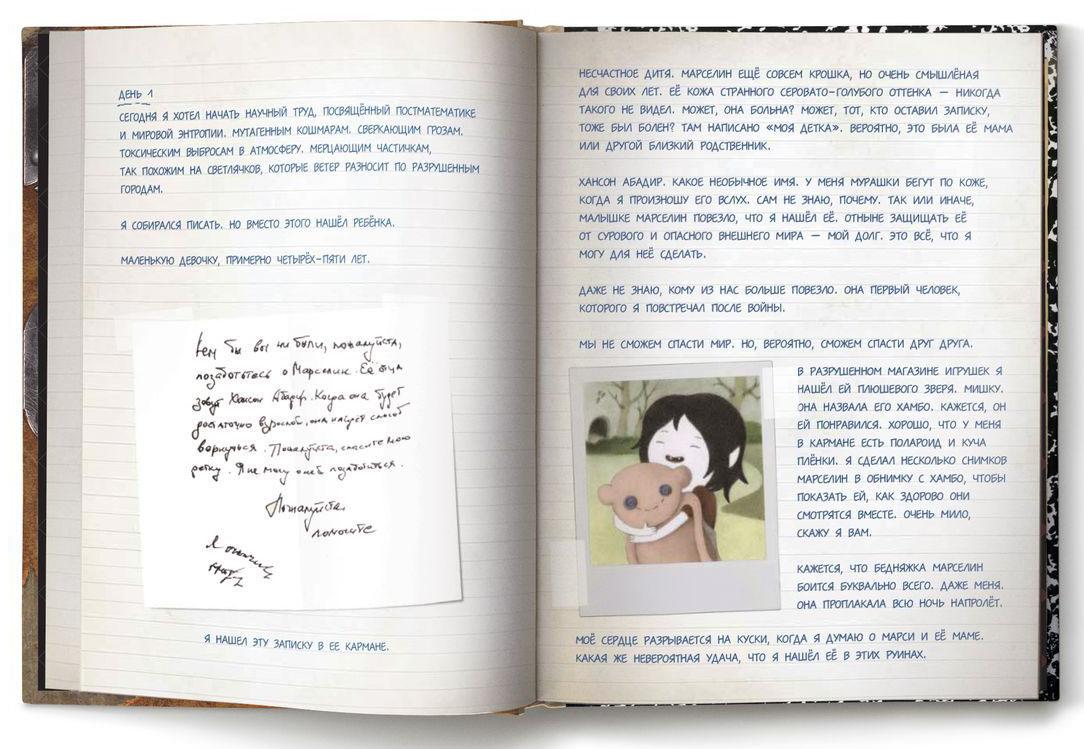 ДЕНЬ 1
СЕГОДНЯ Я ХОТЕЛ НАЧАТЬ НАУЧНЫЙ ТРУД, ПОСВЯЩЁННЫЙ ПОСТМАТЕМАТИКЕ
И МИРОВОЙ ЭНТРОПИИ. МУТАГЕННЫМ КОШМАРАМ. СВЕРКАЮЩИМ ГРОЗАМ.
ТОКСИЧЕСКИМ ВЫБРОСАМ В АТМОСФЕРУ. МЕРЦАЮЩИМ ЧАСТИЧКАМ,
ТАК ПОХОЖИМ НА СВЕТЛЯЧКОВ, КОТОРЫЕ ВЕТЕР РАЗНОСИТ ПО РАЗРУШЕННЫМ
ГОРОДАМ.
Я СОБИРАЛСЯ ПИСАТЬ. НО ВМЕСТО ЭТОГО НАШЁЛ РЕБЁНКА.
МАЛЕНЬКУЮ ДЕВОЧКУ, ПРИМЕРНО ЧЕТЫРЁХ-ПЯТИ ЛЕТ.
Кем бы вы ни были, пожалуйста,
позаботьтесь о Марселин. Её отца
зовут Хансон Абадир. Когда она будет
достаточно взрослой, она найдёт способ
вернуться. Пожалуйста, спасите мою
детку. Я не могу о ней позаботиться.
Пожалуйста,
помогите
Я
Я НАШЕЛ ЭТУ ЗАПИСКУ В ЕЕ КАРМАНЕ.
НЕСЧАСТНОЕ ДИТЯ. МАРСЕЛИН ЕЩЁ СОВСЕМ КРОШКА, НО ОЧЕНЬ СМЫШЛЁНАЯ
ДЛЯ СВОИХ ЛЕТ. ЕЁ КОЖА СТРАННОГО СЕРОВАТО-ГОЛУБОГО ОТТЕНКА — НИКОГДА
ТАКОГО НЕ ВИДЕЛ. МОЖЕТ, ОНА БОЛЬНА? МОЖЕТ, ТОТ, КТО ОСТАВИЛ ЗАПИСКУ,
ТОЖЕ БЫЛ БОЛЕН? ТАМ НАПИСАНО «МОЯ ДЕТКА». ВЕРОЯТНО, ЭТО БЫЛА ЕЁ МАМА
ИЛИ ДРУГОЙ БЛИЗКИЙ РОДСТВЕННИК.
ХАНСОН АБАДИР. КАКОЕ НЕОБЫЧНОЕ ИМЯ. У МЕНЯ МУРАШКИ БЕГУТ ПО КОЖЕ,
КОГДА Я ПРОИЗНОШУ ЕГО ВСЛУХ. САМ НЕ ЗНАЮ, ПОЧЕМУ. ТАК ИЛИ ИНАЧЕ,
МАЛЫШКЕ МАРСЕЛИН ПОВЕЗЛО, ЧТО Я НАШЁЛ ЕЁ. ОТНЫНЕ ЗАЩИЩАТЬ ЕЁ
ОТ СУРОВОГО И ОПАСНОГО ВНЕШНЕГО МИРА — МОЙ ДОЛГ. ЭТО ВСЁ, ЧТО Я
МОГУ ДЛЯ НЕЁ СДЕЛАТЬ.
ДАЖЕ НЕ ЗНАЮ, КОМУ ИЗ НАС БОЛЬШЕ ПОВЕЗЛО. ОНА ПЕРВЫЙ ЧЕЛОВЕК,
КОТОРОГО Я ПОВСТРЕЧАЛ ПОСЛЕ ВОЙНЫ.
МЫ НЕ СМОЖЕМ СПАСТИ МИР. НО, ВЕРОЯТНО, СМОЖЕМ СПАСТИ ДРУГ ДРУГА.
В РАЗРУШЕННОМ МАГАЗИНЕ ИГРУШЕК Я
НАШЁЛ ЕЙ ПЛЮШЕВОГО ЗВЕРЯ. МИШКУ.
ОНА НАЗВАЛА ЕГО ХАМБО. КАЖЕТСЯ, ОН
ЕЙ ПОНРАВИЛСЯ. ХОРОШО, ЧТО У МЕНЯ
В КАРМАНЕ ЕСТЬ ПОЛАРОИД И КУЧА
ПЛЁНКИ. Я СДЕЛАЛ НЕСКОЛЬКО СНИМКОВ
МАРСЕЛИН В ОБНИМКУ С ХАМБО, ЧТОБЫ
ПОКАЗАТЬ ЕЙ, КАК ЗДОРОВО ОНИ
СМОТРЯТСЯ ВМЕСТЕ. ОЧЕНЬ МИЛО,
СКАЖУ Я ВАМ.
КАЖЕТСЯ, ЧТО БЕДНЯЖКА МАРСЕЛИН
БОИТСЯ БУКВАЛЬНО ВСЕГО. ДАЖЕ МЕНЯ.
ОНА ПРОПЛАКАЛА ВСЮ НОЧЬ НАПРОЛЁТ.
МОЁ СЕРДЦЕ РАЗРЫВАЕТСЯ НА КУСКИ, КОГДА Я ДУМАЮ О МАРСИ И ЕЁ МАМЕ.
КАКАЯ ЖЕ НЕВЕРОЯТНАЯ УДАЧА, ЧТО Я НАШЁЛ ЕЁ В ЭТИХ РУИНАХ.